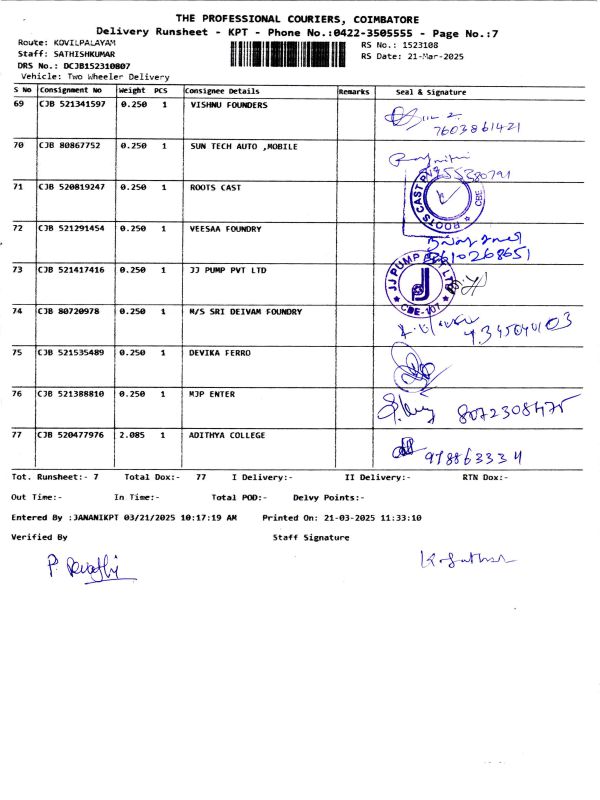 THE PROFESSIONAL COURIERS, COIMBATORE
Delivery Runsheet - KPT - Phone No.:0422-3505555 - Page No.:7
Route: KOVILPALAYAM RS No.: 1523108
Staff: SATHISHKUMAR RS Date: 21-Mar-2025
DRS No.: DCJB152310807
Vehicle: Two Wheeler Delivery
S No Consignment No Weight PCS Consignee Details Remarks Seal & Signature
69 CJB 521341597 0.250 1 VISHNU FOUNDERS
7603861421
70 CJB 80867752 0.250 1 SUN TECH AUTO ,MOBILE
71 CJB 520819247 0.250 1 ROOTS CAST
ROOTS CAST CBE
72 CJB 521291454 0.250 1 VEESAA FOUNDRY
8610268651
73 CJB 521417416 0.250 1 JJ PUMP PVT LTD
JJ PUMP PVT LTD CBE-107
74 CJB 80720978 0.250 1 M/S SRI DEIVAM FOUNDRY
75 CJB 521535489 0.250 1 DEVIKA FERRO
76 CJB 521388810 0.250 1 MJP ENTER
8072308475
77 CJB 520477976 2.085 1 ADITHYA COLLEGE
978863334
Tot. Runsheet:- 7 Total Dox:- 77 I Delivery:- II Delivery:- RTN Dox:-
Out Time:- In Time:- Total POD:- Delvy Points:-
Entered By :JANANIKPT 03/21/2025 10:17:19 AM Printed On: 21-03-2025 11:33:10
Verified By Staff Signature
P. Revathi